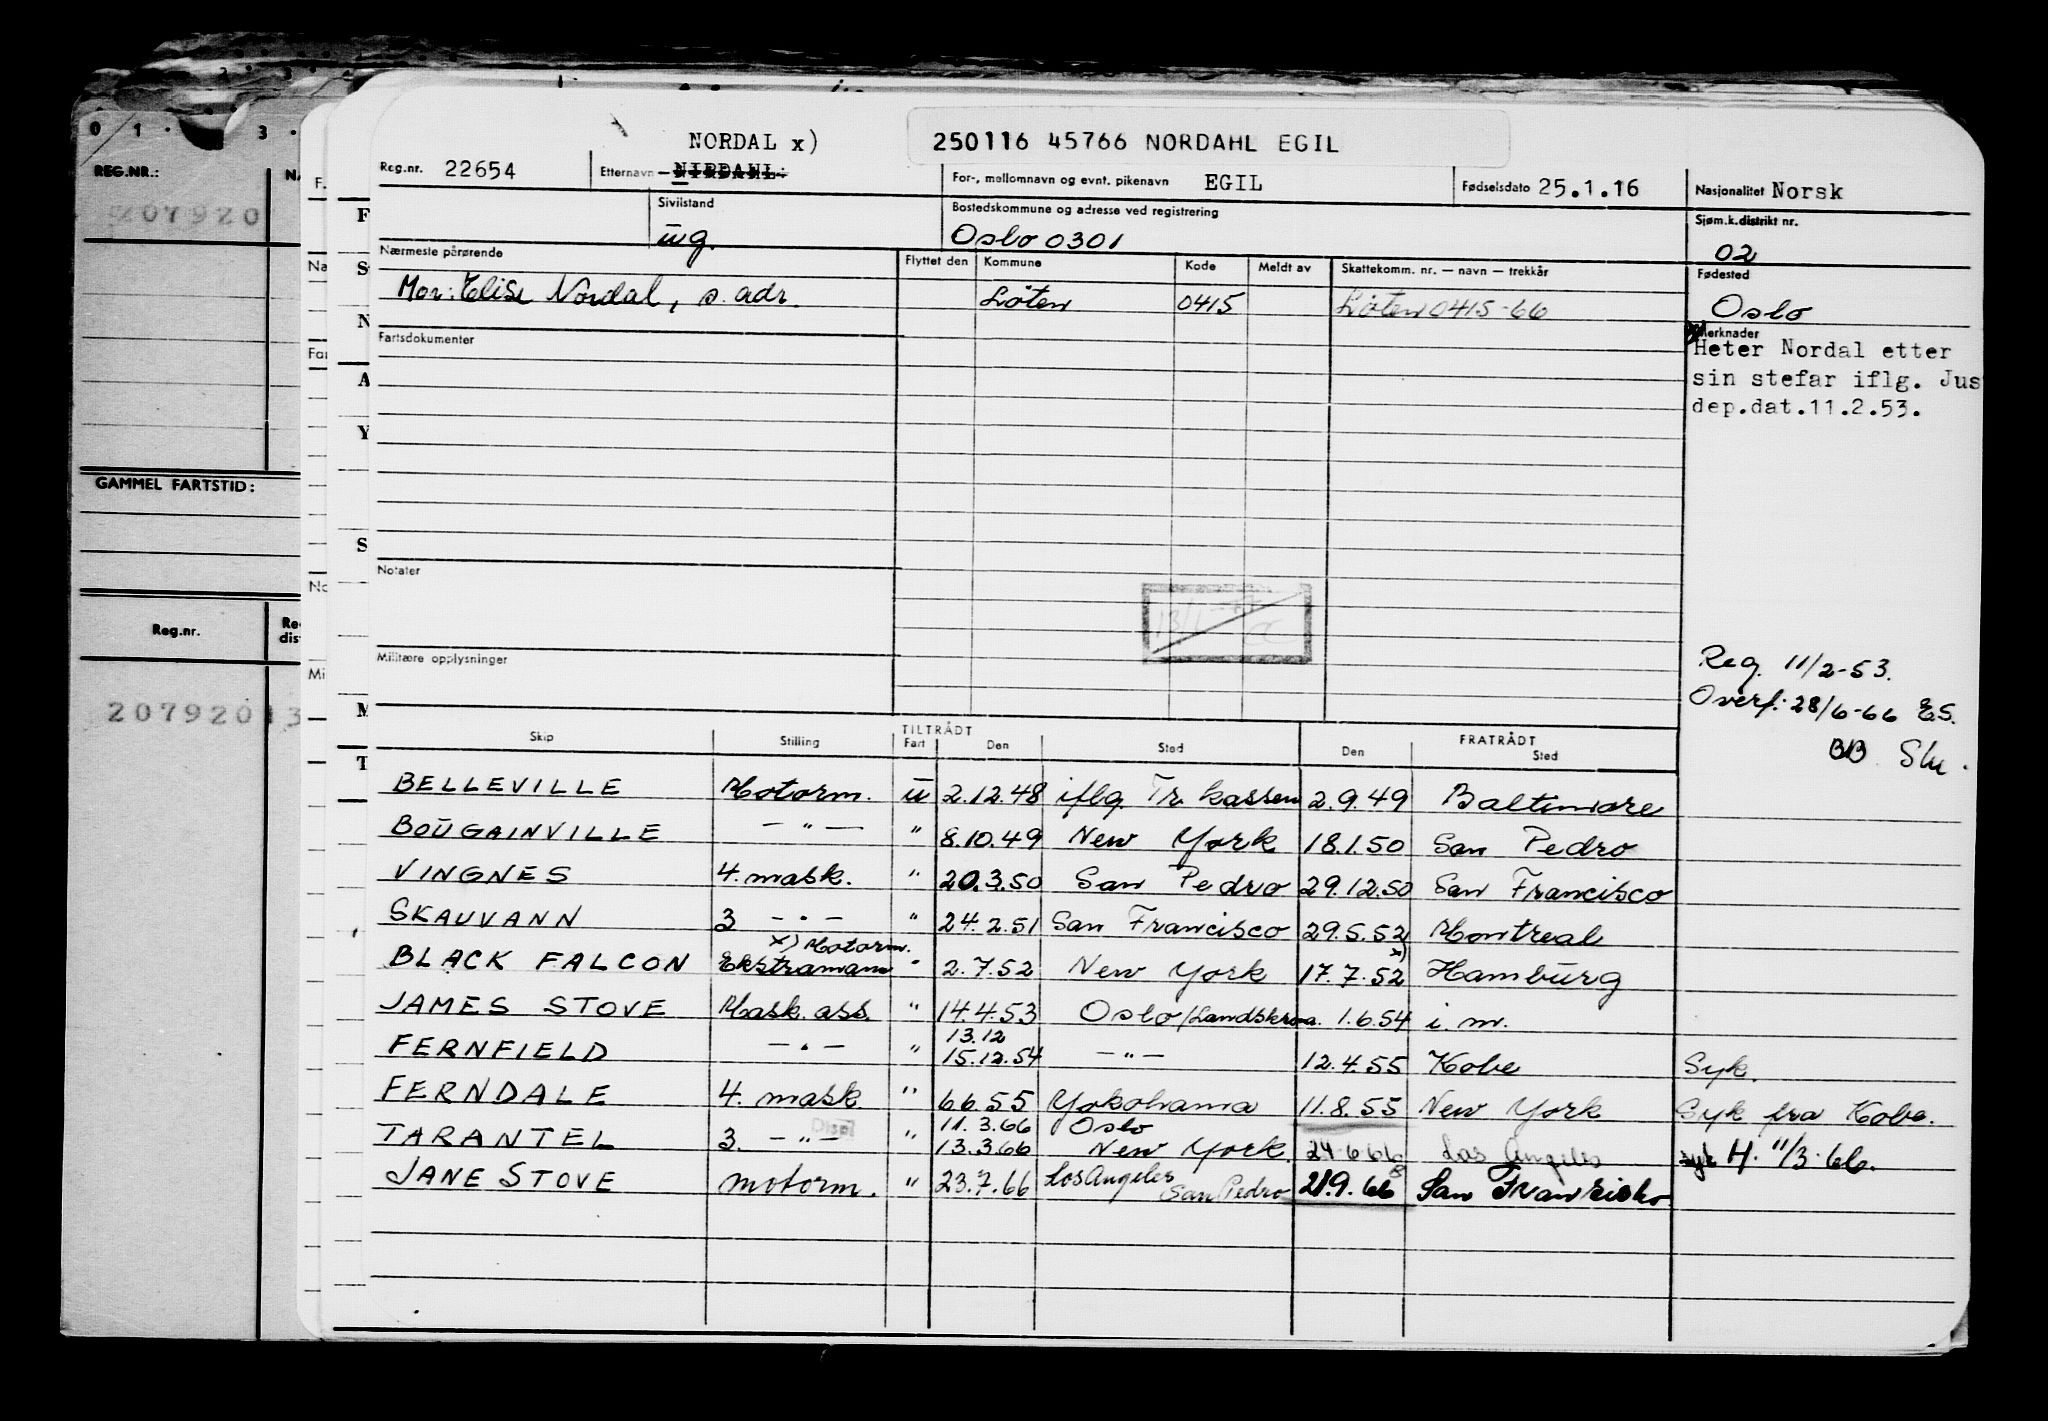 0 1 . 3 .
REG.NR.:
207920
GAMMEL FARTSTID:
Reg.nr.
207920 13
NORDAL x)
250116 45766 NORDAHL EGIL
Reg.nr. 22654
Etternavn NIRDAHL:
For-, mellomnavn og evnt. pikenavn EGIL
Fødselsdato 25.1.16
Nasjonalitet Norsk
Sivilstand
ug.
Bostedskommune og adresse ved registrering
Oslo 0301
Sjøm.k.distrikt nr.
02
Nærmeste pårørende
Mor: Elise Nordal, s. adr.
Flyttet den Kommune Kode Meldt av Skattekomm. nr. — navn — trekkår
Löten 0415 Löten 0415-66
Fødested
Oslo
Fartsdokumenter
Merknader
Heter Nordal etter
sin stefar iflg. Jus
dep.dat.11.2.53.
Notater
Militære opplysninger
Reg. 11/2-53.
Overf. 28/6-66 ES.
BB
Skip Stilling TILTRÅDT Fart Den Sted FRATRÅDT Den Sted
BELLEVILLE Motorm. u 2.12.48 iflg Tr. kassen 2.9.49 Baltimore
BOUGAINVILLE — " — " 8.10.49 New York 18.1.50 San Pedro
VINGNES 4. mask. " 20.3.50 San Pedro 29.12.50 San Francisco
SKAUVANN 3 — " — " 24.2.51 San Francisco 29.5.52 Montreal
BLACK FALCON x) Motorm. Ekstramann " 2.7.52 New York 17.7.52 x) Hamburg
JAMES STOVE Mask. ass. " 14.4.53 Oslo/Landskrona. 1.6.54 i. m.
FERNFIELD — " — " 13.12 15.12.54 — " — 12.4.55 Kobe Syk.
FERNDALE 4. mask. " 6.6.55 Yokohama 11.8.55 New York Syk fra Kobe.
TARANTEL 3. — " — Disp " 11.3.66 Oslo 13.3.66 New York. 24.6.66 Los Angeles H. 11/3-66.
JANE STOVE motorm. " 23.7.66 Los Angeles San Pedro 21.9.66 San Franzisko